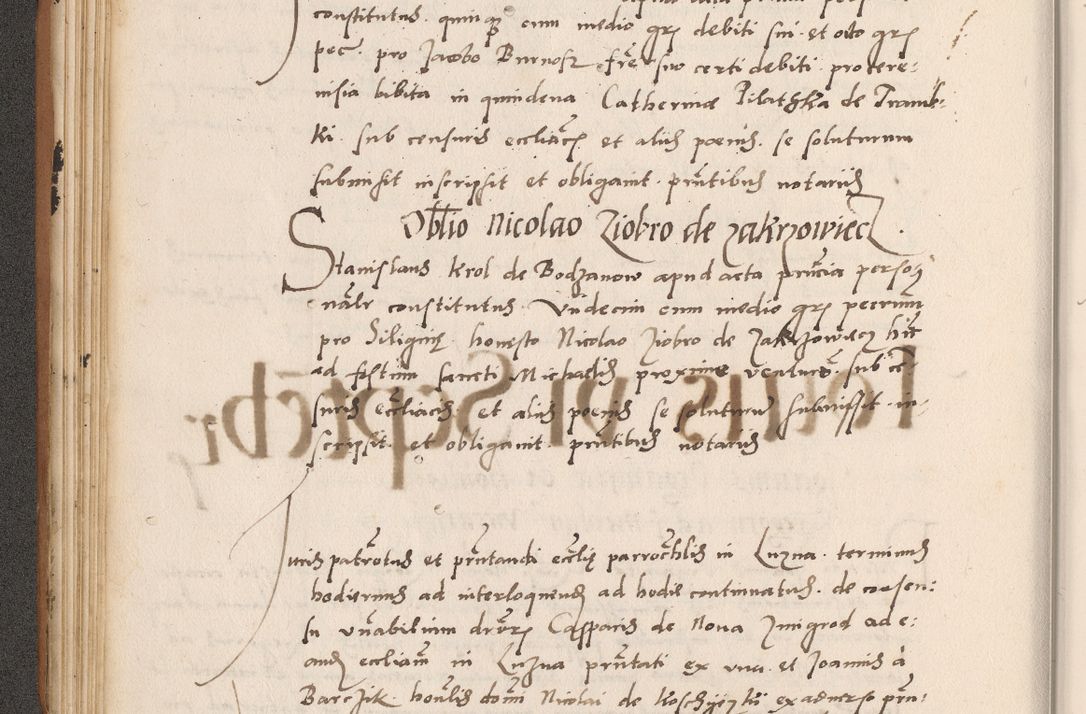 constitutus. quinqꝫ cum medio grs̄ debiti sui et octo grs̄
pec. pro Jacobo Burnosz frē suo certi debiti pro cere:
visia bibita in quindena Catherinæ Pilathka de Tramb:
ki. sub censuris eccliacs̄ et aliis poenis. se soluturum
submisit inscripsit et obligavit. prntibus notariis
Obltio Nicolao Ziobro de zakrzowiecz.
Stanislaus Krol de Bodzanow apud acta prntia perso:
nalr constitutus. Vndecim cum medio grs̄ pecuniar̄
pro Siligine honesto Nicolao Ziobro de Zakrzowiecz hinc
ad festum sancti Michaelis proxime venturū. sub ce:
suris eccliacis et aliis poenis se soluturum submisit. in:
scripsit et obligavit. prntibus notariis
Iuris patrotus et prntandi ecclię parrochlis in Luzna. terminus
hodiernus ad interloquendum ad hodie continuatus. de consen:
su vnabilium drvrs̄ Casparis de Nova Zmigrod ad e:
andem eccliam in Luzna prntati ex vna. et Joannis a
Barczik. honlis domi Nicolai de Koschyeczki ex adverso prn: